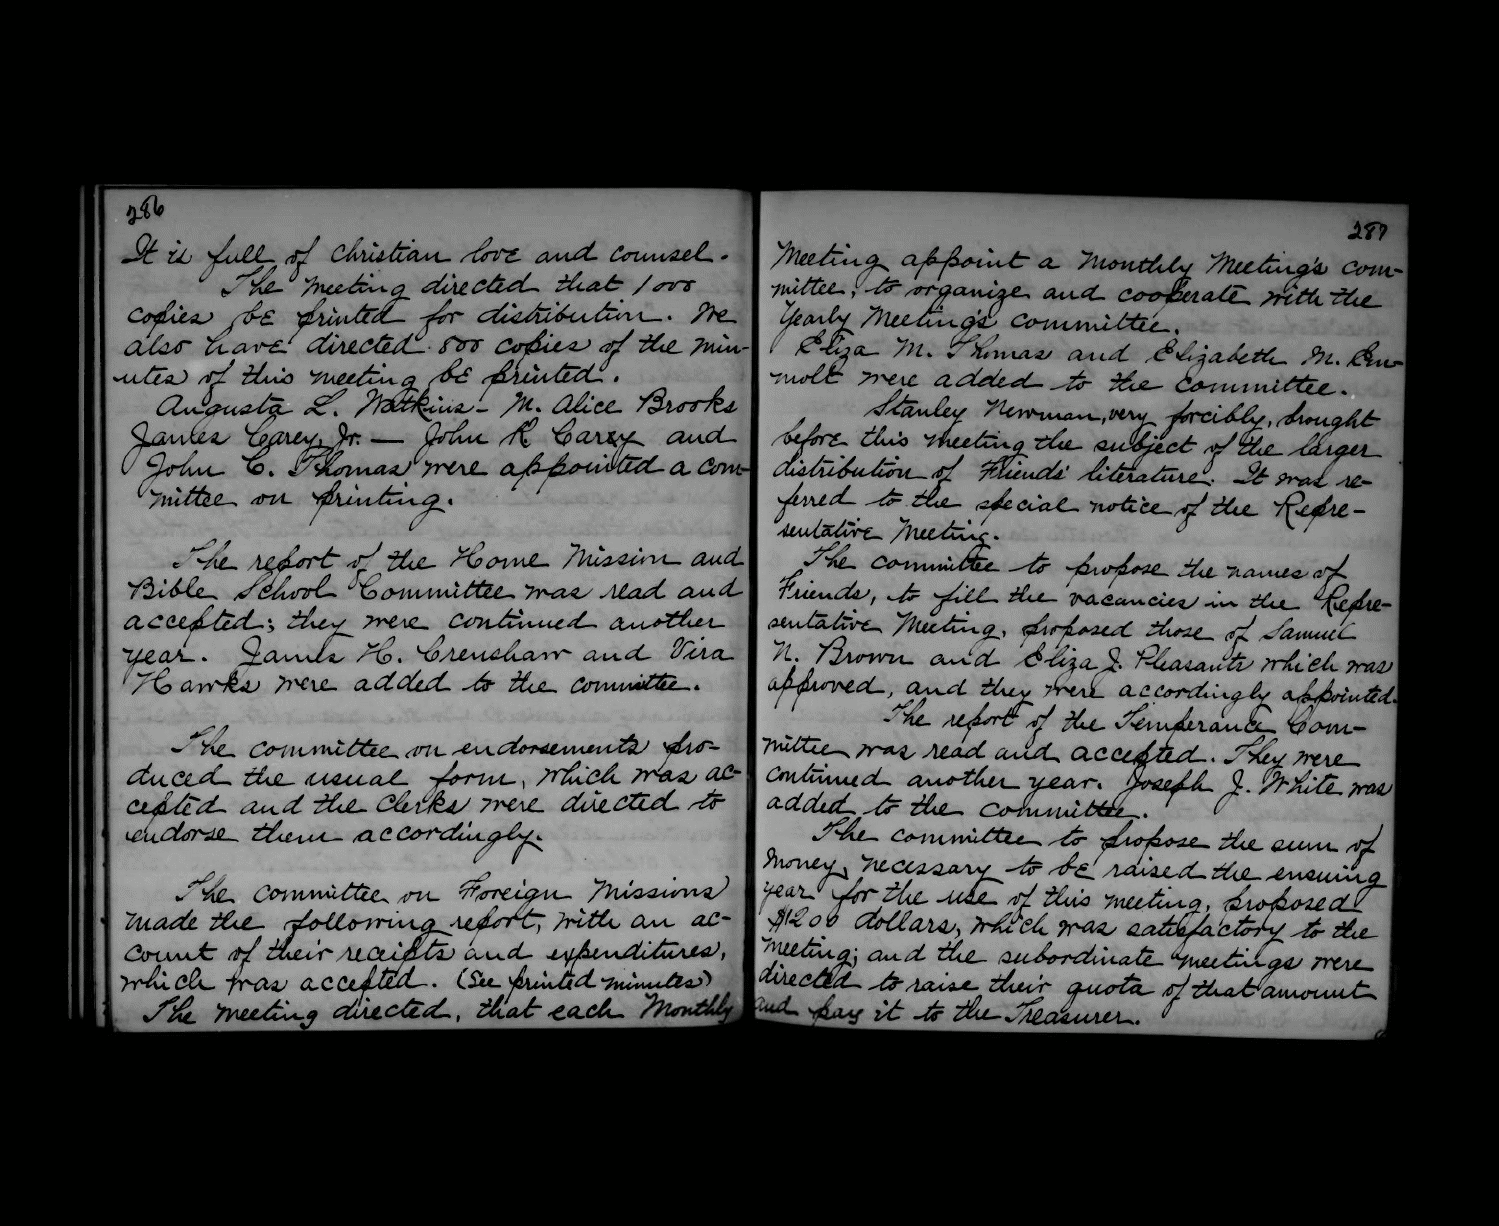 286
It is full of christian love and counsel.
The meeting directed that 1000
copies be printed for distribution. We
also have directed 800 copies of the min-
utes of this meeting be printed.
Augusta L. Watkins - M. Alice Brooks
James Carey, Jr. — John K Carey and
John C. Thomas were appointed a com-
mittee on printing.
The report of the Home Mission and
Bible School Committee was read and
accepted; they were continued another
year. James H. Crenshaw and Vira
Hawks were added to the committee.
The committee on endorsements pro-
duced the usual form, which was ac-
cepted and the clerks were directed to
endorse them accordingly.
The committee on Foreign Missions
made the following report, with an ac-
count of their receipts and expenditures,
which was accepted. (See printed minutes)
The meeting directed, that each Monthly
287
Meeting appoint a Monthly Meeting's com-
mittee, to organize and cooperate with the
Yearly Meeting's committee.
Eliza M. Thomas and Elizabeth M.
were added to the committee.
Stanley Newman, very forcibly, brought
before this meeting the subject of the larger
distribution of Friends' literature. It was re-
ferred to the special notice of the Repre-
sentative Meeting.
The committee to propose the names of
Friends, to fill the vacancies in the Repre-
sentative Meeting, proposed those of Samuel
N. Brown and Eliza J. Pleasants which was
approved, and they were accordingly appointed.
The report of the Temperance Com-
mittee was read and accepted. They were
continued another year. Joseph J. White was
added to the committee.
The committee to propose the sum of
money, necessary to be raised the ensuing
year for the use of this meeting, proposed
$1200 dollars, which was satisfactory to the
meeting; and the subordinate meetings were
directed to raise their quota of that amount
and pay it to the Treasurer.